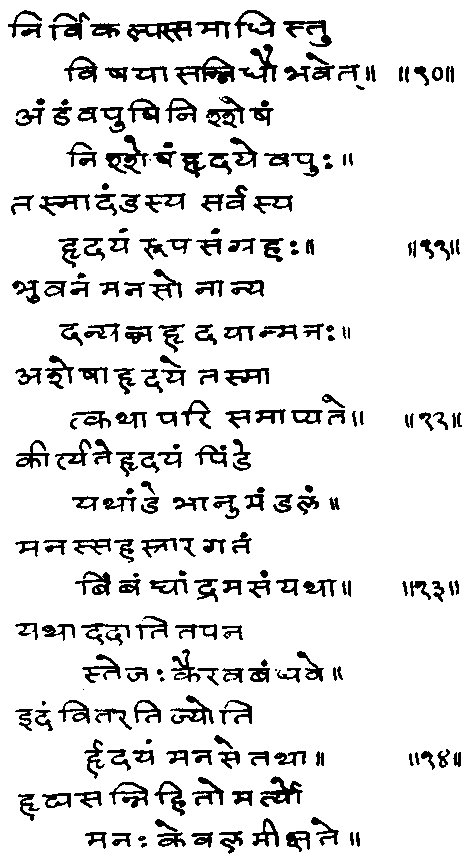 निर्विकल्पस्समाधिस्तु
विषयासन्निधौभवेत्॥ ॥१०॥
अंडंवपुषिनिश्शेषं
निश्शेषंहृदयेवपुः॥
तस्मादंडस्य सर्वस्य
हृदयं रूपसंग्रहः॥ ॥११॥
भुवनं मनसो नान्य
दन्यन्नहृदयान्मनः॥
अशेषाहृदये तस्मा
त्कथा परि समाप्यते॥ ॥१२॥
कीर्त्यतेहृदयं पिंडे
यथांडे भानुमंडलं॥
मनस्सहस्रारगतं
बिंबंचांद्रमसंयथा॥ ॥१३॥
यथाददातितपन
स्तेजःकैरवबंधवे॥
इदंवितरतिज्योति
र्हृदयंमनसेतथा॥ ॥१४॥
हृद्यसन्निहितोमर्त्यो
मनःकेवलमीक्षते॥